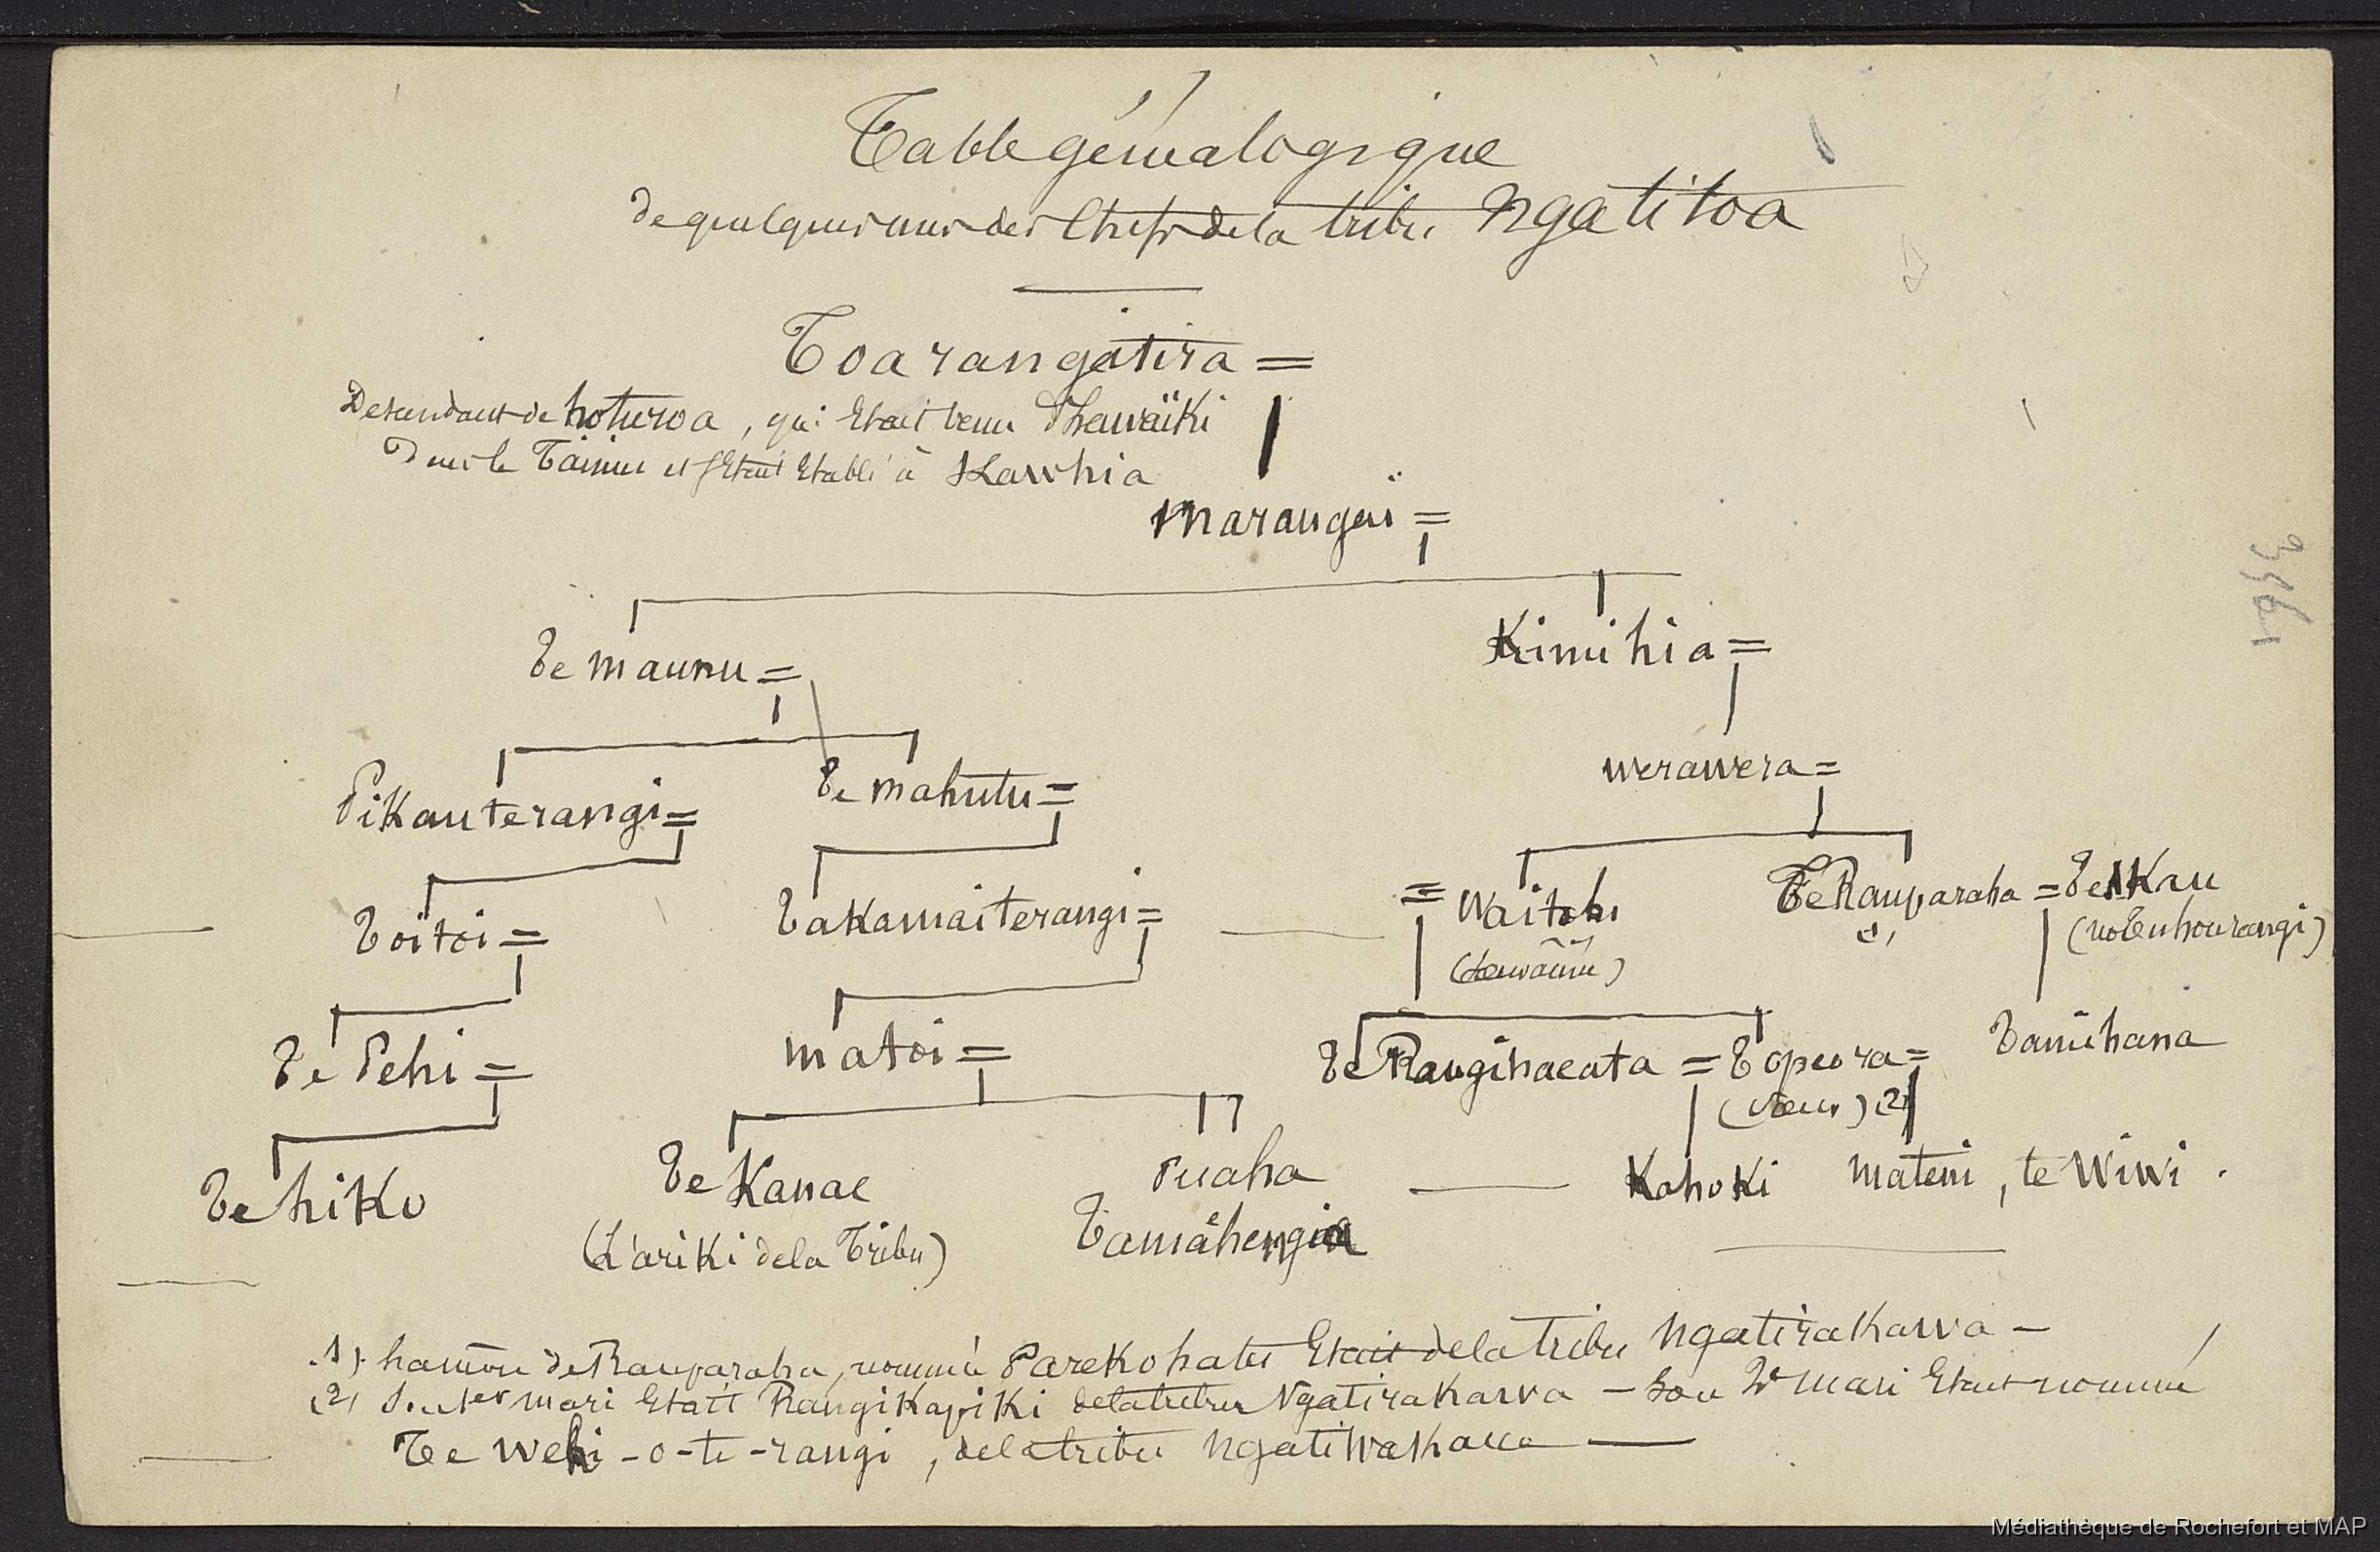 Table généalogique
de quelques uns des Chefs de la tribu Ngatitoa
Toarangatira =
Descendant de hoturoa, qui Etait venu d'hawaïki
dans le Tainui et s'Etait Etabli à Kawhia
marangai =
Te maunu =
Kimihia =
Pikauterangi =
Te mahutu =
werawera =
Toitoi =
Takamaiterangi =
= Waitohi
Te Rauparaha = Te Kau
(1)
Te Pehi =
matoi =
Te Rangihaeata = Topeora =
Tamihana
(sœur) (2)
Te hiko
Te Kanae
Puaha
Kahoki
mateni, te Wiwi.
(L'ariki de la Tribu)
(1) de Rauparaha, nommée Parekohatu Etait de la tribu Ngatirakawa -
(2) Son 1er mari Etait Rangikapiki de la tribu Ngatirakawa - Son 2e mari Etait nommé
Te Wehi-o-te-rangi, de la tribu
3361
Médiathèque de Rochefort et MAP